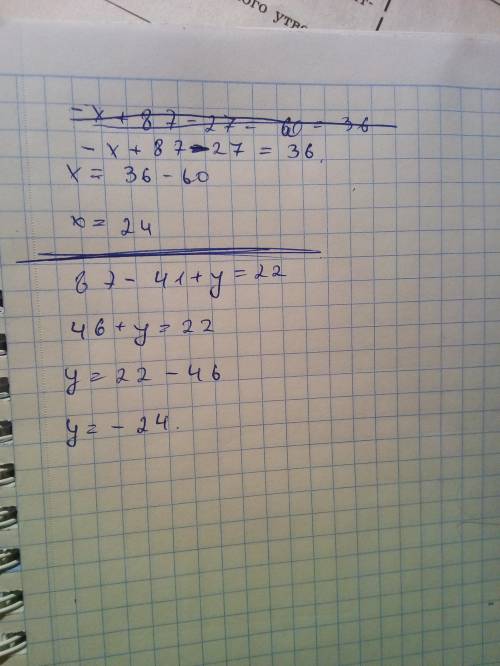 ого утве
- x + 87 - 27 - 60 = 36
- x + 87 - 27 = 36.
x = 36 - 60
x = 24
87 - 41 + y = 22
46 + y = 22
y = 22 - 46
y = - 24.